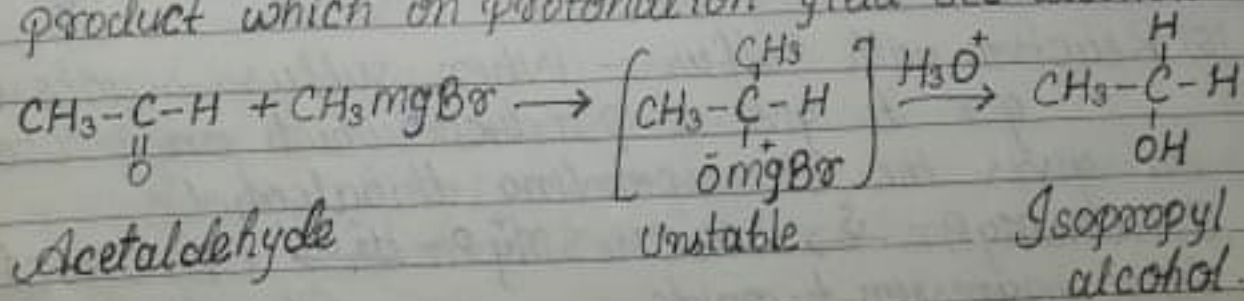 product which on protonation yield
CH3 H
CH3-C-H + CH3mgBr → [CH3-C-H] H3O+ → CH3-C-H
O ŌmgBr+ OH
Acetaldehyde Unstable Isopropyl
alcohol.